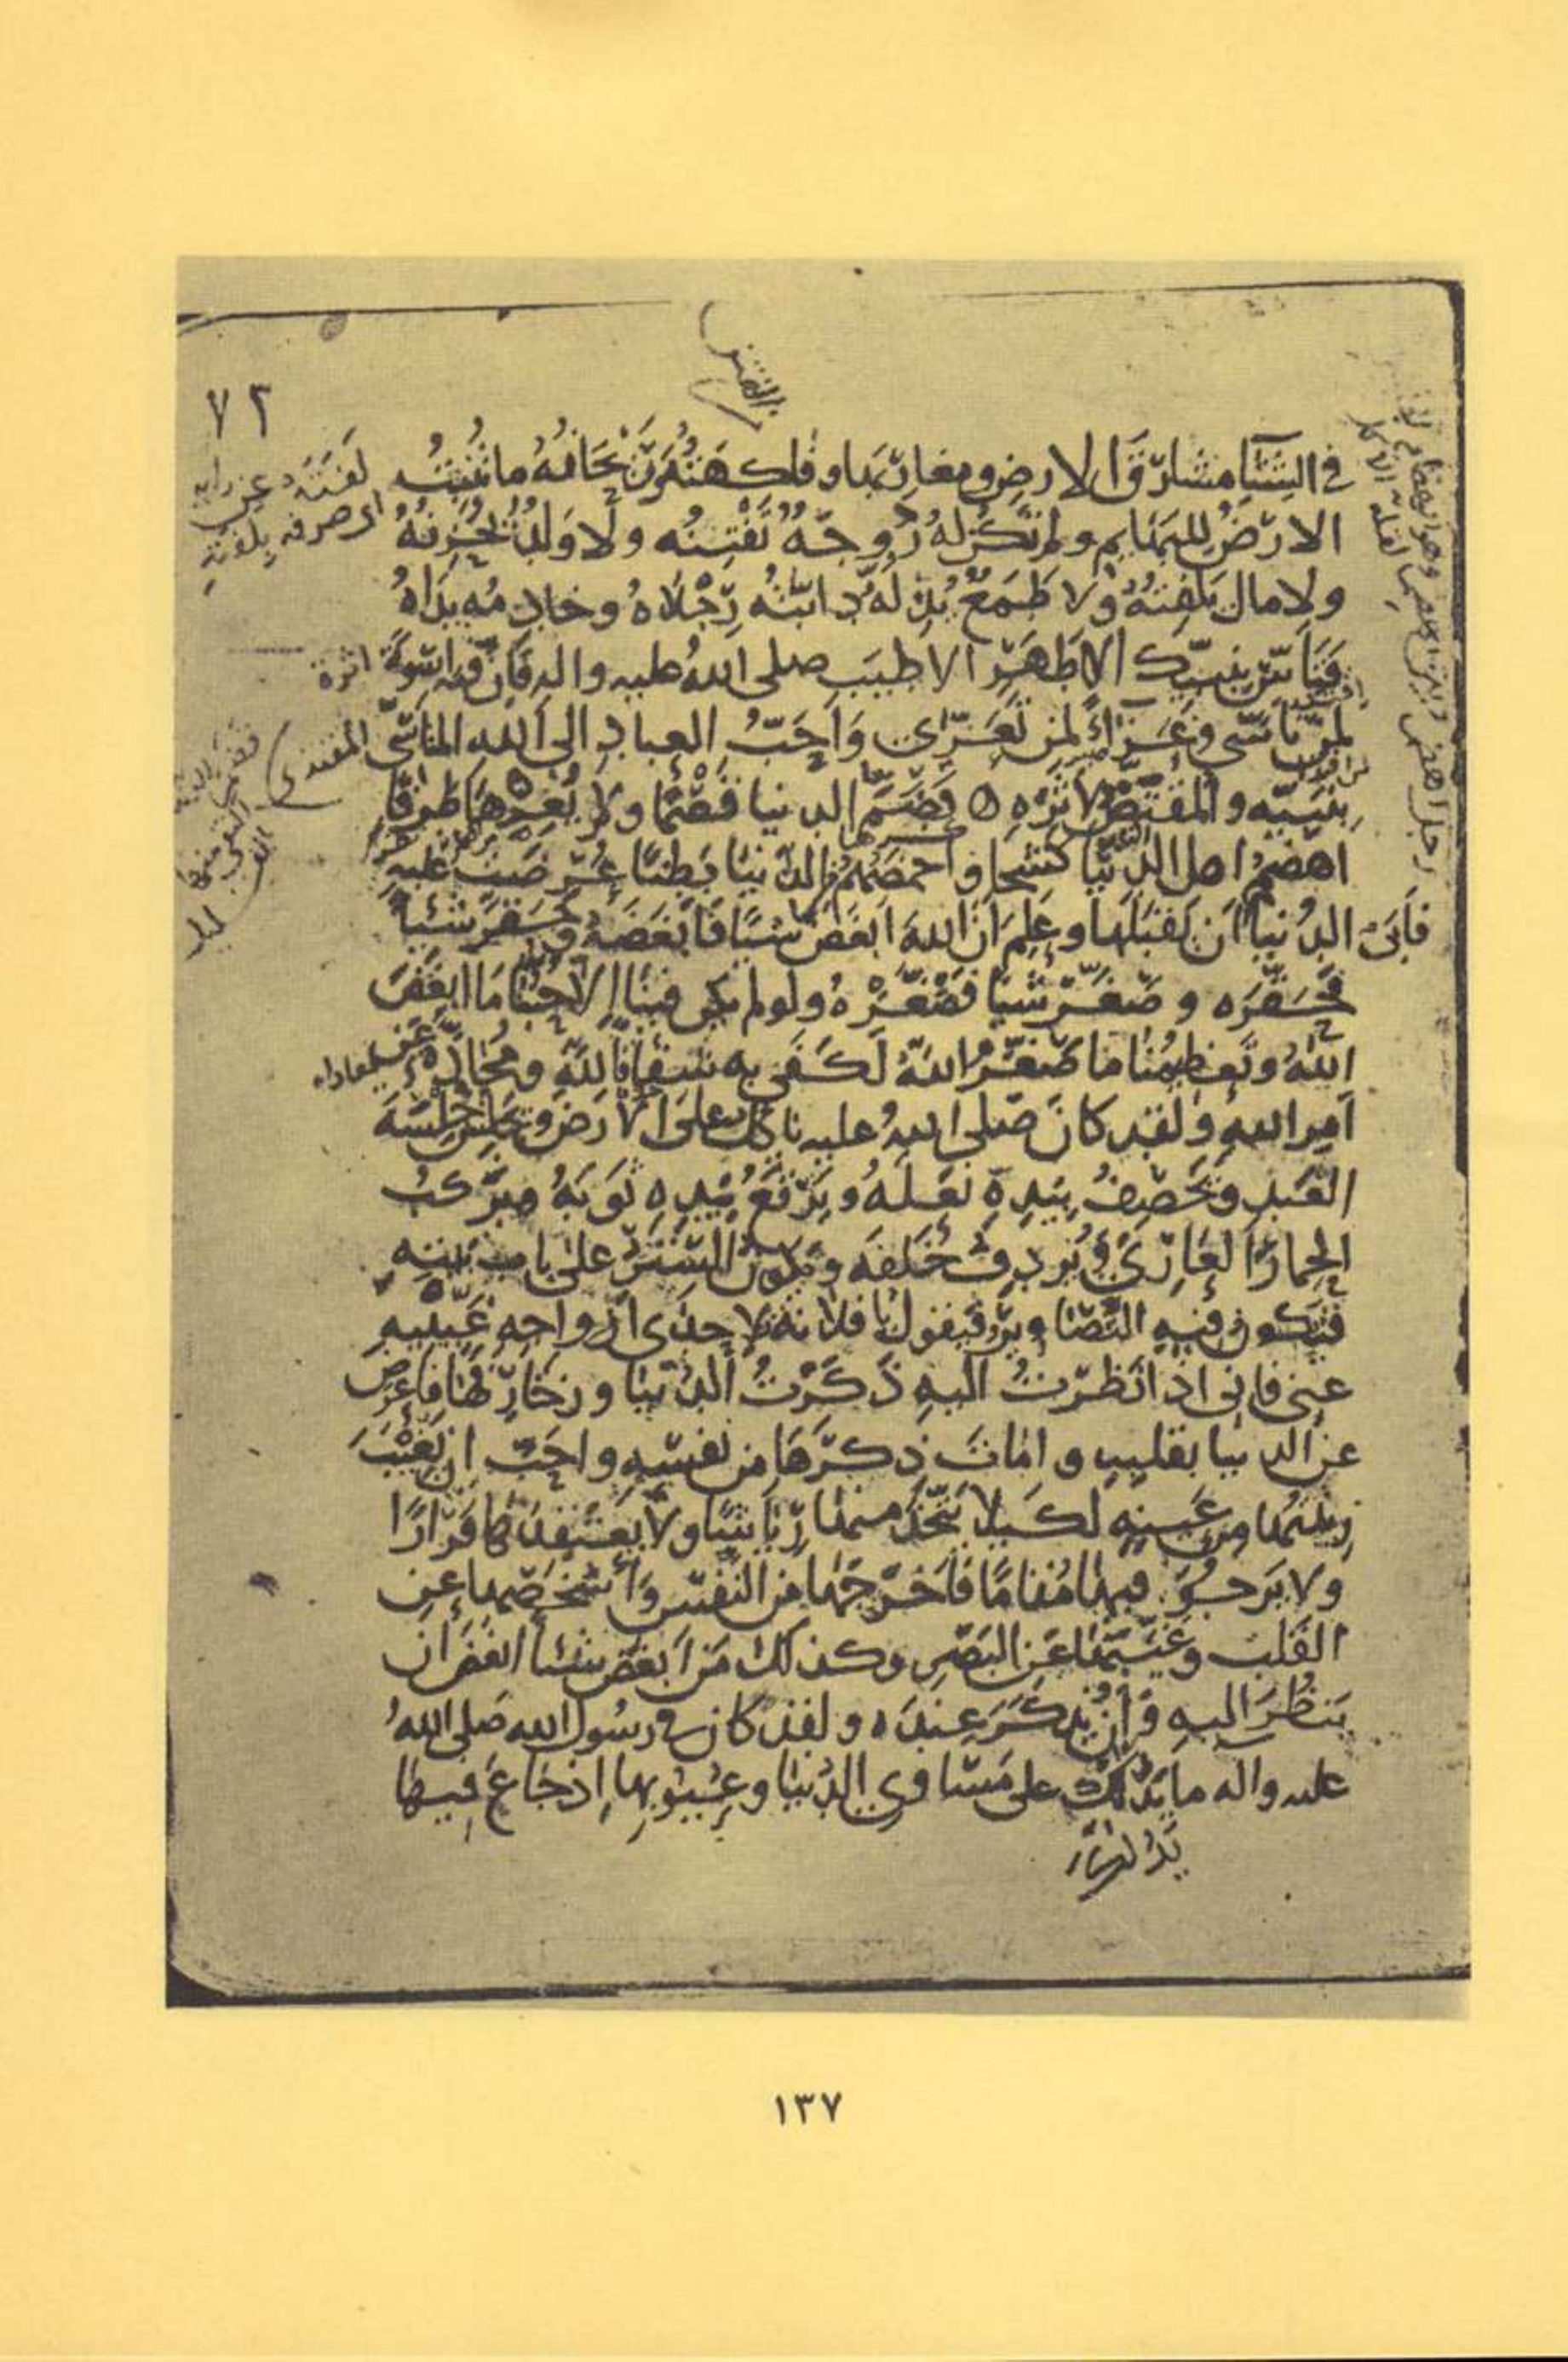 ٧٢
في الشتا مشارق الارض ومغاربها وفاكهته وريحانه ما تنبت
الارض للبهايم ولم تكن له زوجة تفتنه ولا ولد يحزنه
ولا مال يلفته ولا طمع يذله دابته رجلاه وخادمه يداه
فتاس بنبيك الاطهر الاطيب صلى الله عليه واله فان فيه اسوة
لمن تاسى وعزاء لمن تعزى واحب العباد الى الله المتاسي
بنبيه والمقتص لاثره قضم الدنيا قضما ولم يعرها طرفا
اهضم اهل الدنيا كشحا واخمصهم من الدنيا بطنا عرضت عليه
الدنيا فابى ان يقبلها وعلم ان الله ابغض شيئا فابغضه وحقر شيئا
فحقره وصغر شيئا فصغره ولو لم يكن فينا الا حبنا ما ابغض
الله وتعظيمنا ما صغر الله لكفى به شقاقا لله ومحادة عن
امر الله ولقد كان صلى الله عليه ياكل على الارض ويجلس جلسة
العبد ويخصف بيده نعله ويرقع بيده ثوبه ويركب
الحمار العاري ويردف خلفه ويكون الستر على باب بيته
فتكون فيه التصاوير فيقول يا فلانة لاحدى ازواجه غيبيه
عني فاني اذا نظرت اليه ذكرت الدنيا وزخارفها فاعرض
عن الدنيا بقلبه وامات ذكرها من نفسه واحب ان يغيب
زينتها من عينه لكيلا يتخذ منها رياشا ولا يعتقدها قرارا
ولا يرجو فيها مقاما فاخرجها من النفس واشخصها عن
القلب وغيبها عن البصر وكذلك من ابغض شيئا ابغض ان
ينظر اليه وان يذكر عنده ولقد كان في رسول الله صلى الله
عليه واله ما يدلك على مساوي الدنيا وعيوبها اذ جاع فيها
لفته عن رايه
اي صرفه يلفته
اثره
المقتدي
١٣٧